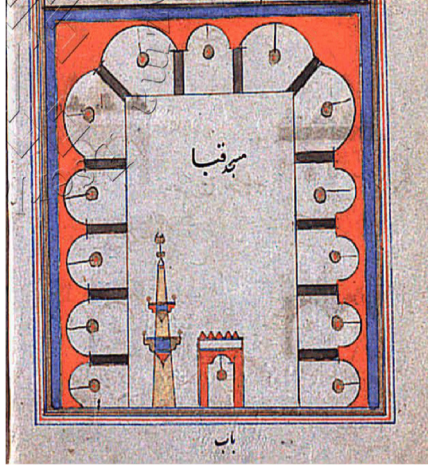 مسجد قبا
باب